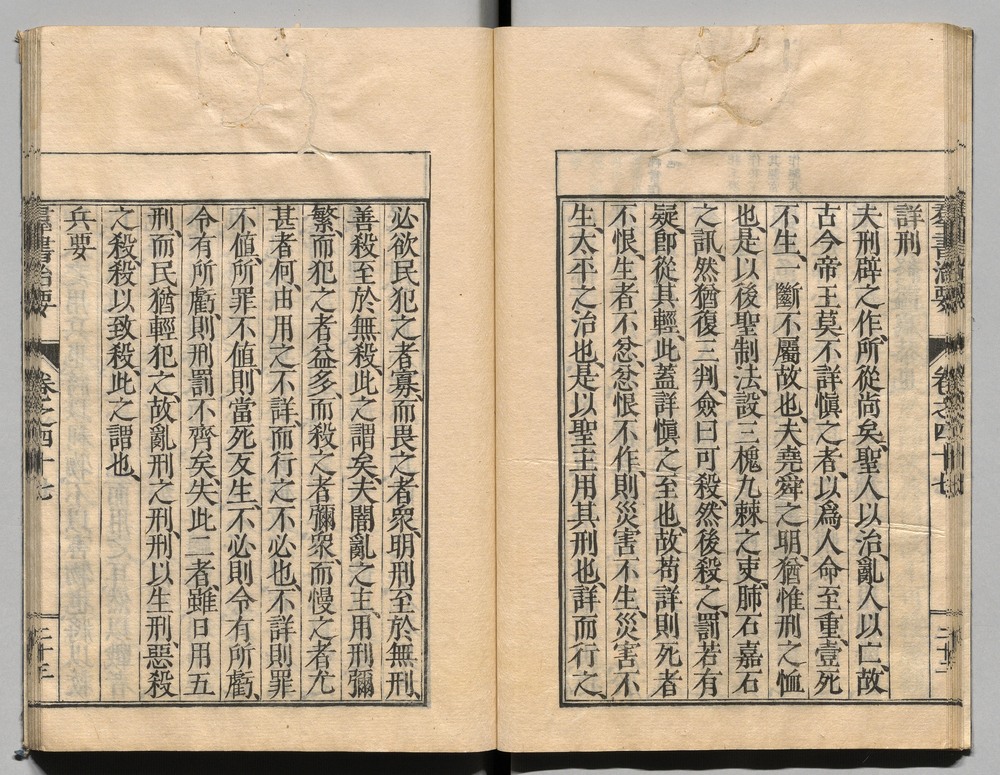 羣書治要 卷之四十七 二十三
詳刑
夫刑辟之作、所從尚矣、聖人以治、亂人以亡、故
古今帝王、莫不詳愼之者、以爲人命至重、壹死
不生、一斷不屬故也、夫堯舜之明、猶惟刑之恤
也、是以後聖制法、設三槐九棘之吏、肺石嘉石
之訊、然猶復三判、僉曰可殺、然後殺之、罰若有
疑、卽從其輕、此蓋詳愼之至也、故苟詳則死者
不恨、生者不忿、忿恨不作、則災害不生、災害不
生、太平之治也、是以聖主用其刑也、詳而行之、
必欲民犯之者寡、而畏之者衆、明刑至於無刑、
善殺至於無殺、此之謂矣、夫闇亂之主、用刑彌
繁、而犯之者益多、而殺之者彌衆、而慢之者尤
甚者何、由用之不詳、而行之不必也、不詳則罪
不値、所罪不値、則當死反生、不必則令有所虧、
令有所虧、則刑罰不齊矣、失此二者、雖日用五
刑、而民猶輕犯之、故亂刑之刑、刑以生刑、惡殺
之殺、殺以致殺、此之謂也、
兵要
羣書治要 卷之四十七